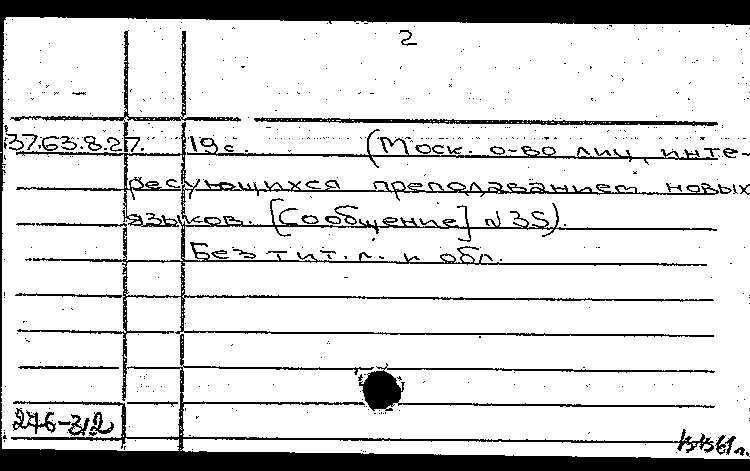 2
37.63.8.27. 19 с. (Моск. о-во лиц, инте-
ресующихся преподаванием новых
языков. [Сообщение] № 35).
Без тит. л. и обл.
276-312